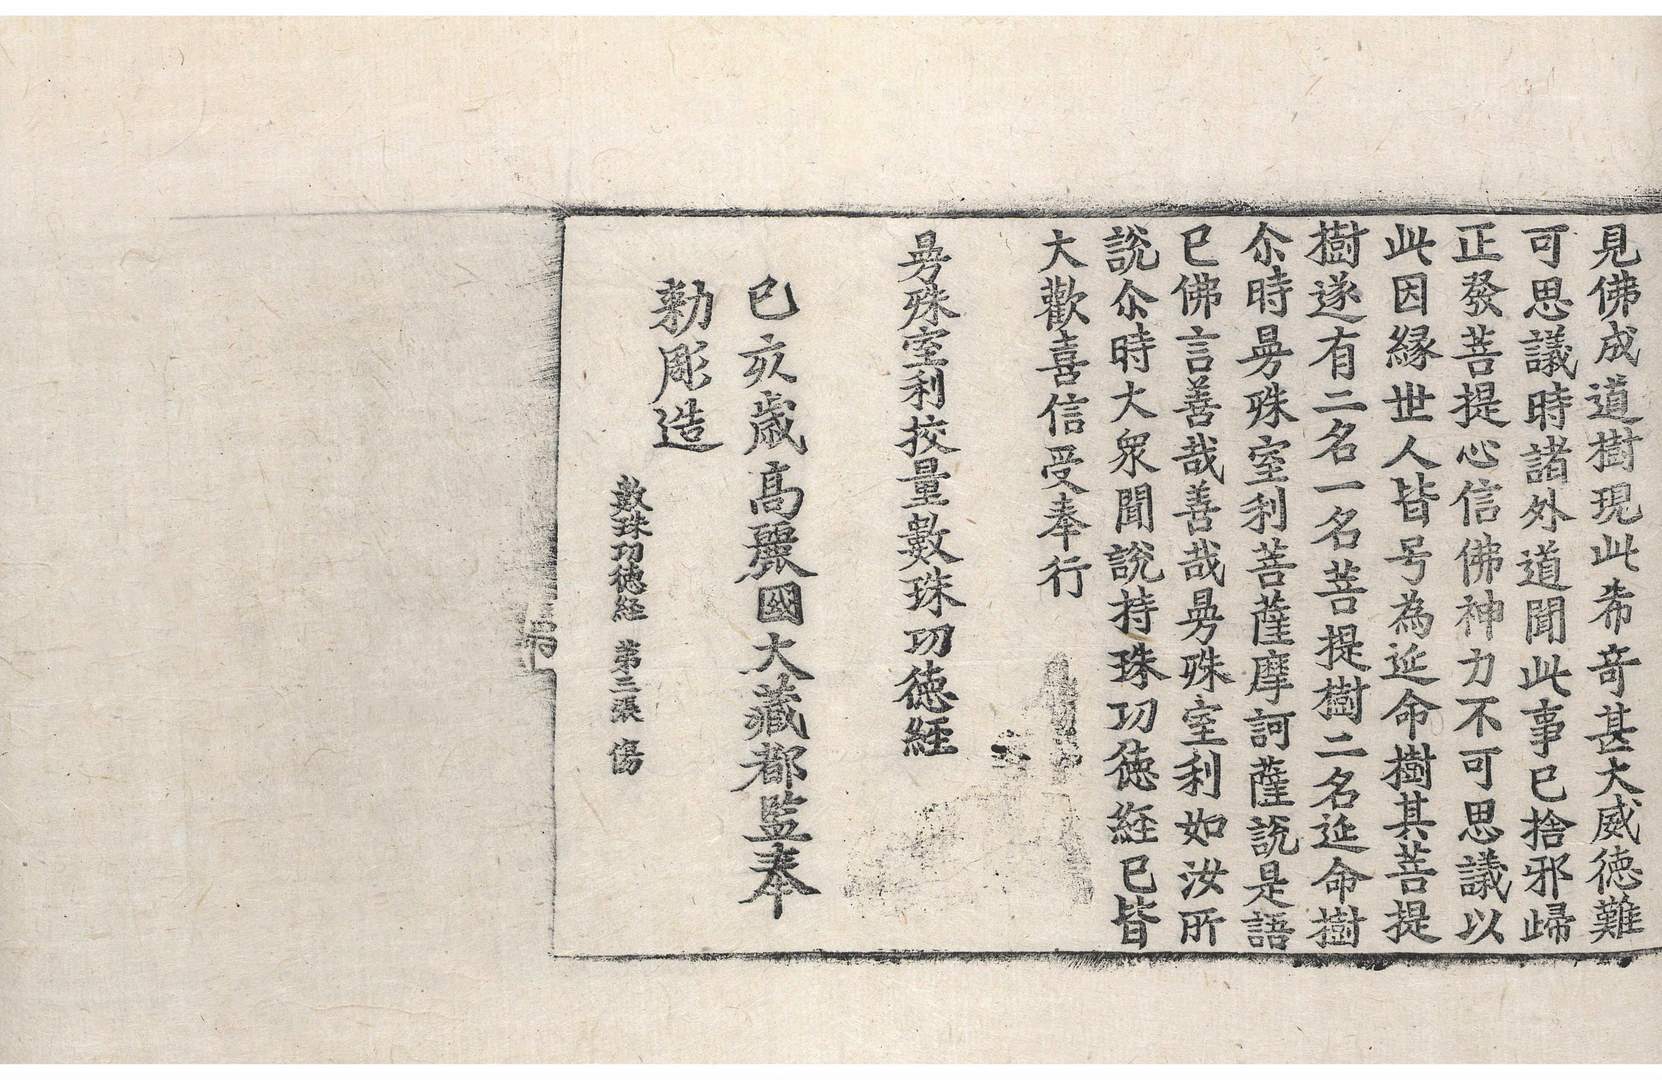 見佛成道樹現此希竒甚大威徳難
可思議時諸外道聞此事已捨邪歸
正發菩提心信佛神力不可思議以
此因縁世人皆号為延命樹其菩提
樹遂有二名一名菩提樹二名延命樹
尒時曼殊室利菩薩摩訶薩說是語
已佛言善哉善哉曼殊室利如汝所
說尒時大衆聞說持珠功徳経已皆
大歡喜信受奉行
曼殊室利挍量數珠功徳経
已亥歳高麗國大藏都監奉
勅彫造
數珠功徳経 第二張 傷